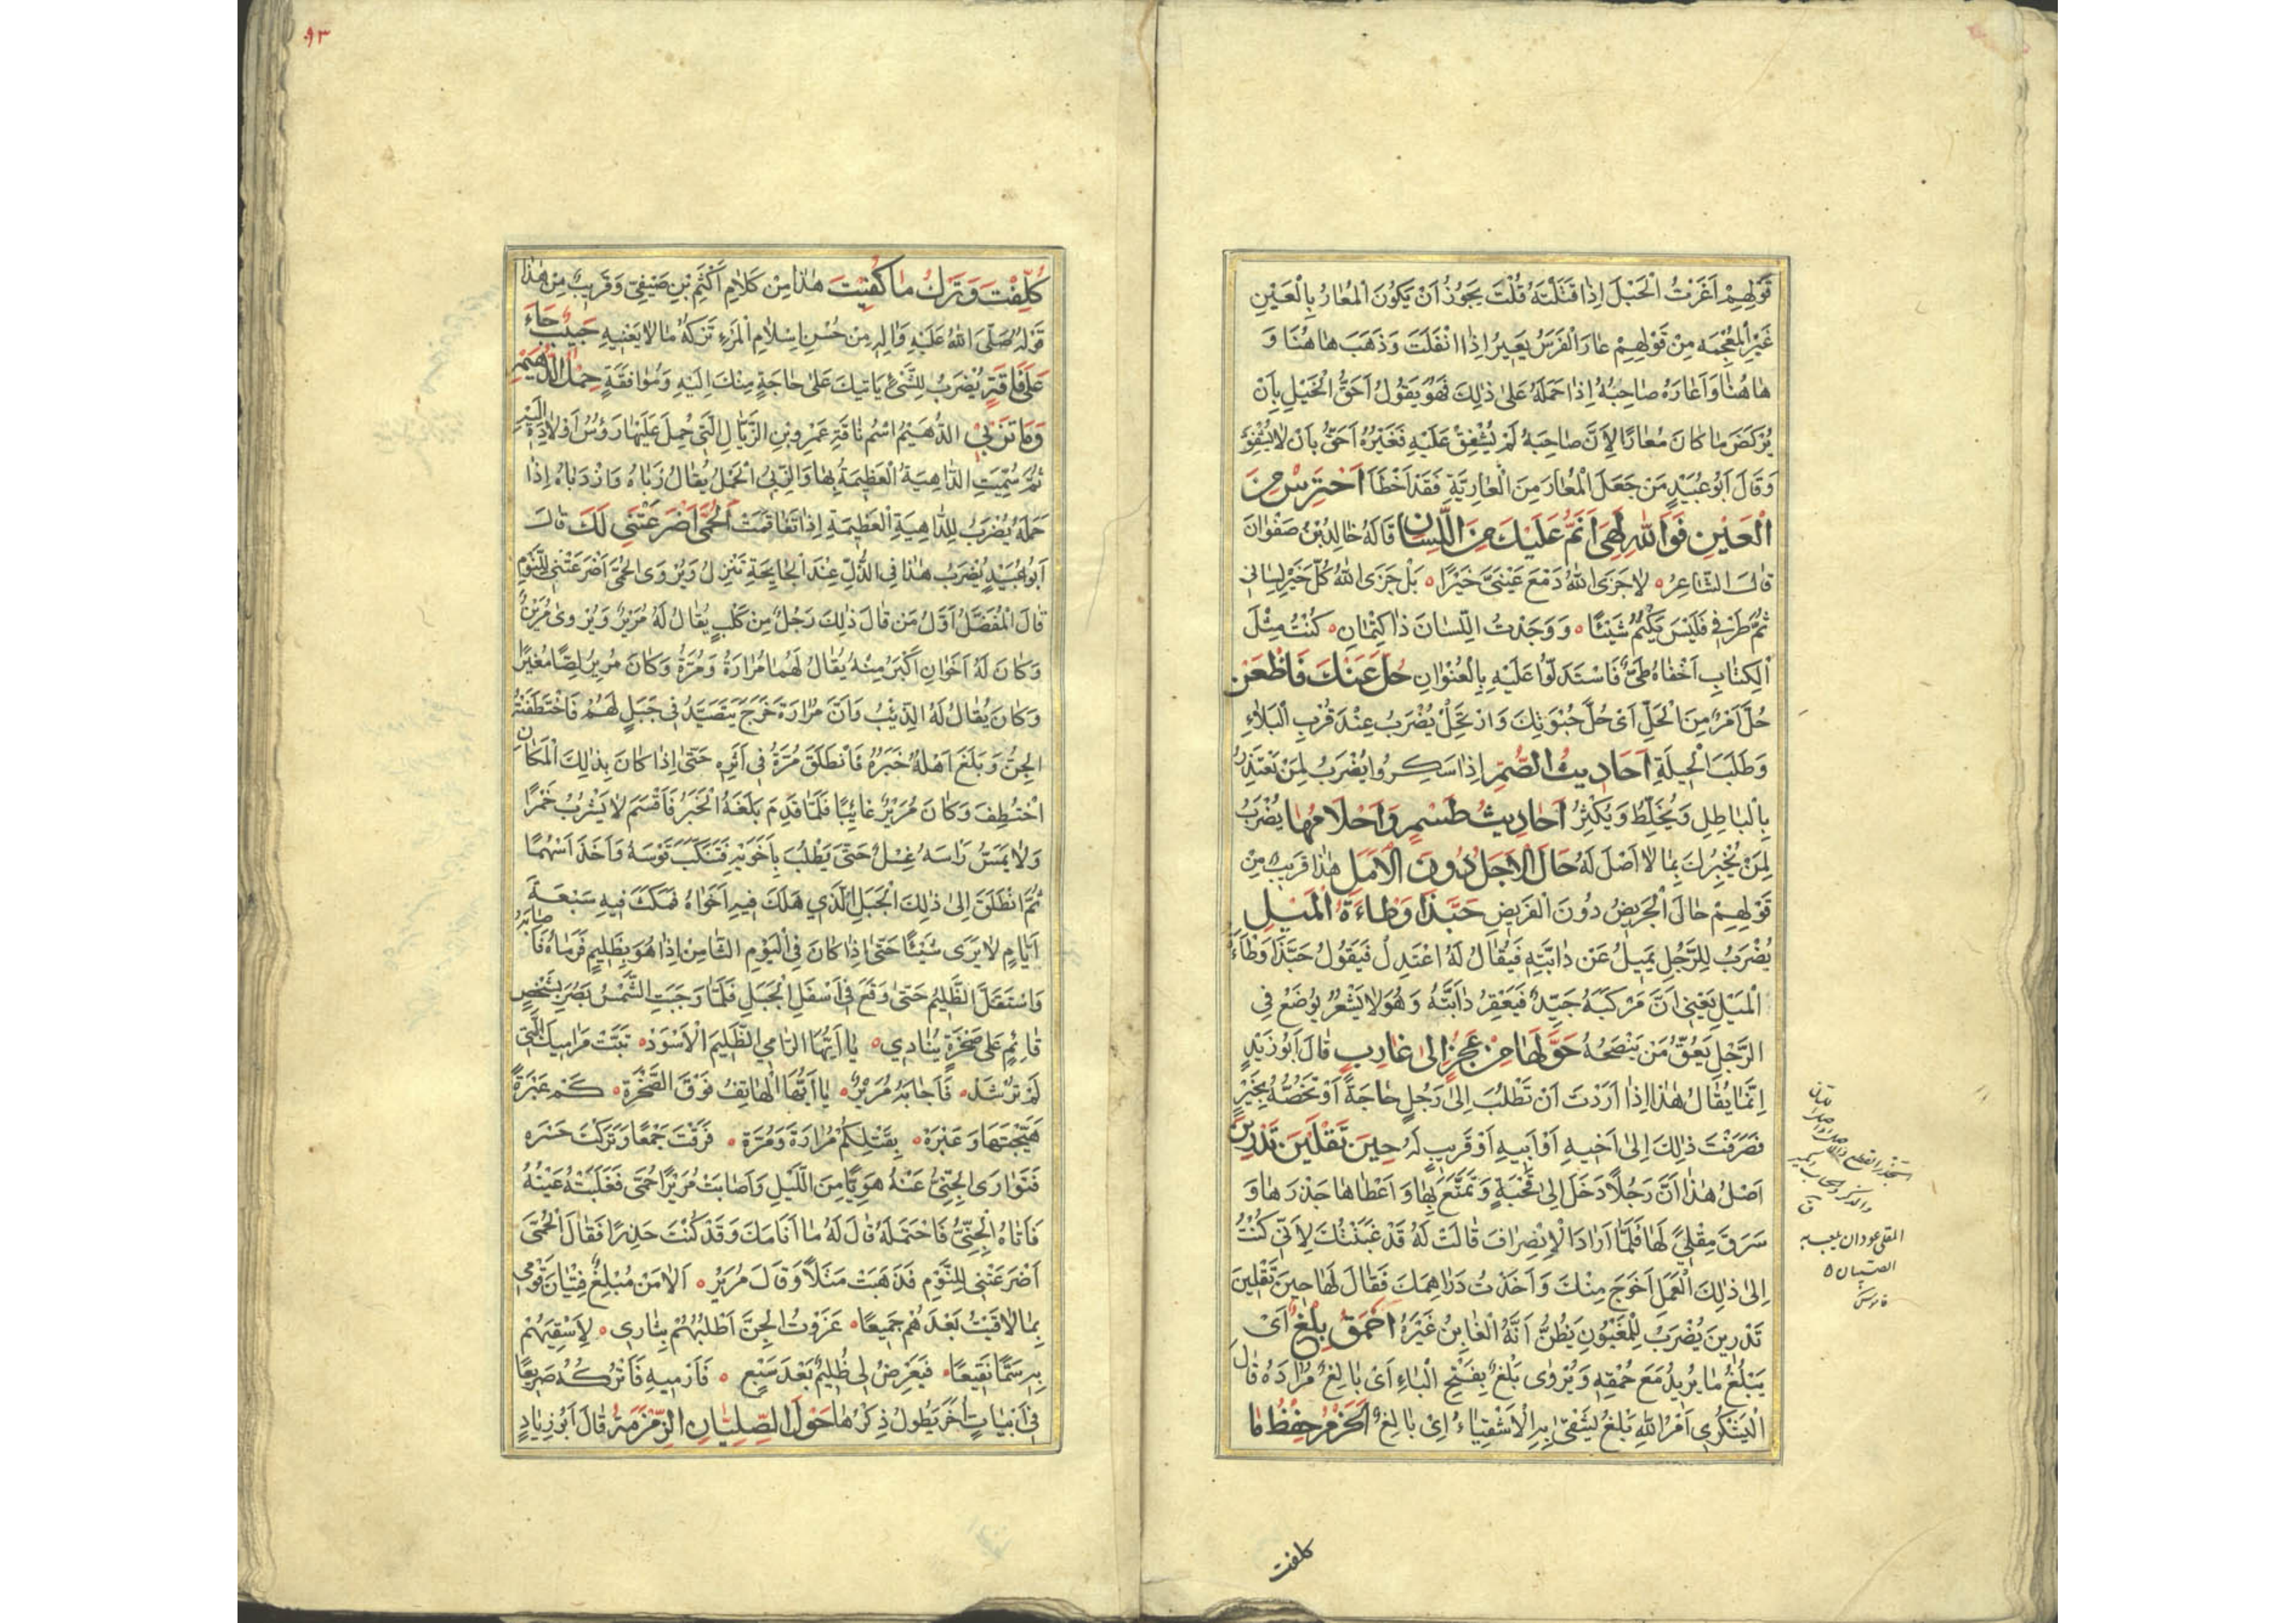 قَوْلِهِمْ اَغَرْتُ الْحَبْلَ اِذَا فَتَلْتَهُ قُلْتُ يَجُوزُ اَنْ يَكُونَ الْمُعَارُ بِالْعَيْنِ
غَيْرِ الْمُعْجَمَه مِنْ قَوْلِهِمْ عَارَ الْفَرَسُ يَعِيرُ اِذَا انْفَلَتَ وَذَهَبَ هَاهُنَا وَ
هَاهُنَا وَاَعَارَهُ صَاحِبُهُ اِذَا حَمَلَهُ عَلٰى ذٰلِكَ فَهُوَ يَقُولُ اَحَقُّ الْخَيْلِ بِاَنْ
يُرْكَضَ مَا كَانَ مُعَارًا لِاَنَّ صَاحِبَهُ لَمْ يُشْفِقْ عَلَيْهِ فَغَيْرُهُ اَحَقُّ بِاَنْ لَا يُشْفِقَ
وَقَالَ اَبُو عُبَيْدٍ مَنْ جَعَلَ الْمُعَارَ مِنَ الْعَارِيَّةِ فَقَدْ اَخْطَاَ اَحْتَرِسْ مِنَ
الْعَيْنِ فَوَاللّٰهِ لَهِىَ اَنَمُّ عَلَيْكَ مِنَ اللِّسَانِ قَالَهُ خَالِدُ بْنُ صَفْوَانَ
قَالَ الشَّاعِرُ ه لَا جَزَى اللّٰهُ دَمْعَ عَيْنَىَّ خَيْرًا ه بَلْ جَزَى اللّٰهُ كُلَّ خَيْرٍ لِسَانِى
ثُمَّ طَرْفِى فَلَيْسَ يَكْتُمُ شَيْئًا ه وَوَجَدْتُ اللِّسَانَ ذَا كِتْمَانِ ه كُنْتُ مِثْلَ
الْكِتَابِ اَخْفَاهُ طَىٌّ فَاسْتَدَلُّوا عَلَيْهِ بِالْعُنْوَانِ حُلَّ عَنْكَ فَاظْعَنْ
حُلَّ اَمْرٌ مِنَ الْحَلِّ اَىْ حُلَّ حُبْوَتِكَ وَارْتَحِلْ يُضْرَبُ عِنْدَ قُرْبِ الْبَلَاءِ
وَطَلَبِ الْحِيلَةِ اَحَادِيثُ الصُّمِّ اِذَا سَكِرُوا يُضْرَبُ لِمَنْ يَعْتَذِرُ
بِالْبَاطِلِ وَيُخَلِّطُ وَيُكْثِرُ اَحَادِيثُ طَسْمٍ وَاَحْلَامُهَا يُضْرَبُ
لِمَنْ يُخْبِرُكَ بِمَا لَا اَصْلَ لَهُ حَالَ الْاَجَلُ دُونَ الْاَمَلِ هٰذَا قَرِيبٌ مِنْ
قَوْلِهِمْ حَالَ الْجَرِيضُ دُونَ الْقَرِيضِ حَبَّذَا وَطْاءَةُ الْمَيْلِ
يُضْرَبُ لِلرَّجُلِ يَمِيلُ عَنْ دَابَّتِهِ فَيُقَالُ لَهُ اعْتَدِلْ فَيَقُولُ حَبَّذَا وَطْاءَةُ
الْمَيْلِ يَعْنِى اَنَّ مَرْكَبَهُ جَيِّدٌ فَيَعْقِرُ دَابَّتَهُ وَهُوَ لَا يَشْعُرُ يُوضَعُ فِى
الرَّجُلِ يَعُقُّ مَنْ يَنْصَحُهُ حَوَّلَهَا مِنْ عَجُزٍ اِلٰى غَارِبٍ قَالَ اَبُو زَيْدٍ
اِنَّمَا يُقَالُ هٰذَا اِذَا اَرَدْتَ اَنْ تَطْلُبَ اِلٰى رَجُلٍ حَاجَةً اَوْ تَخُصَّهُ بِخَيْرٍ
فَصَرَفْتَ ذٰلِكَ اِلٰى اَخِيهِ اَوْ اَبِيهِ اَوْ قَرِيبٍ لَهُ حِينَ تَقْلِينَ تَدْرِينَ
اَصْلُ هٰذَا اَنَّ رَجُلًا دَخَلَ اِلٰى قَحْبَةٍ وَتَمَتَّعَ بِهَا وَاَعْطَاهَا جَذْرَهَا وَ
سَرَقَ مِقْلًى لَهَا فَلَمَّا اَرَادَ الْاِنْصِرَافَ قَالَتْ لَهُ قَدْ غَبَنْتُكَ لِاَنِّى كُنْتُ
اِلٰى ذٰلِكَ الْعَمَلِ اَحْوَجَ مِنْكَ وَاَخَذْتُ دَرَاهِمَكَ فَقَالَ لَهَا حِينَ تَقْلِينَ
تَدْرِينَ يُضْرَبُ لِلْمَغْبُونِ يَظُنُّ اَنَّهُ الْغَابِنُ غَيْرَهُ اَحْمَقُ بِلْغٌ اَىْ
يَبْلُغُ مَا يُرِيدُ مَعَ حُمْقِهِ وَيُرْوٰى بَلْغٌ بِفَتْحِ الْبَاءِ اَىْ بَالِغٌ مُرَادَهُ قَالَ
الْيَشْكُرِى اَمْرُ اللّٰهِ بَلْغٌ يَشْقٰى بِهِ الْاَشْقِيَاءُ اَىْ بَالِغٌ اَلْحَزْمُ حِفْظُ مَا
المقلى عودان يلعب به
الصبيان
قاموس
كلفت
٩٣
كُلِّفْتَ وَتَرْكُ مَا كُفِيْتَ هٰذَا مِنْ كَلَامِ اَكْثَمِ بْنِ صَيْفِىّ وَقَرِيبٌ مِنْ هٰذَا
قَوْلُهُ صَلَّى اللّٰهُ عَلَيْهِ وَاٰلِهِ مِنْ حُسْنِ اِسْلَامِ الْمَرْءِ تَرْكُهُ مَا لَا يَعْنِيهِ حَبِيبٌ جَاءَ
عَلٰى فَاقَةٍ يُضْرَبُ لِلشَّىْءِ يَاْتِيكَ عَلٰى حَاجَةٍ مِنْكَ اِلَيْهِ وَمُوَافَقَةٍ حِمْلُ الدُّهَيْمِ
وَمَا تَزْبِىْ الدُّهَيْمُ اسْمُ نَاقَةِ عَمْرِو بْنِ الزَّبَّانِ الَّتِى حُمِلَ عَلَيْهَا رَؤُسُ اَوْلَادِهِ اِلَيْهِ
ثُمَّ سُمِّيَتِ الدَّاهِيَةُ الْعَظِيمَةُ بِهَا وَالزَّبْىُ الْحَمْلُ يُقَالُ زَبَاهُ وَازْدَبَاهُ اِذَا
حَمَلَهُ يُضْرَبُ لِلدَّاهِيَةِ الْعَظِيمَةِ اِذَا تَفَاقَمَتْ اَلْحُمّٰى اَضْرَعَتْنِى لَكَ قَالَ
اَبُو عُبَيْدٍ يُضْرَبُ هٰذَا فِى الذُّلِّ عِنْدَ الْحَاجَةِ تَنْزِلُ وَيُرْوَى الْحُمّٰى اَضْرَعَتْنِى لِلنَّوْمِ
قَالَ الْمُفَضَّلُ اَوَّلُ مَنْ قَالَ ذٰلِكَ رَجُلٌ مِنْ كَلْبٍ يُقَالُ لَهُ مُرَيْرٌ وَيُرْوٰى مُرَيْنٌ
وَكَانَ لَهُ اَخَوَانِ اَكْبَرُ مِنْهُ يُقَالُ لَهُمَا مُرَارَةُ وَمُرَّةُ وَكَانَ مُرَيْرٌ لِصًّا مُغِيرًا
وَكَانَ يُقَالُ لَهُ الذِّئْبُ وَاَنَّ مُرَارَةَ خَرَجَ يَتَصَيَّدُ فِى جَبَلٍ لَهُمْ فَاخْتَطَفَتْهُ
الْجِنُّ وَبَلَغَ اَهْلَهُ خَبَرُهُ فَانْطَلَقَ مُرَّةُ فِى اَثَرِهِ حَتّٰى اِذَا كَانَ بِذٰلِكَ الْمَكَانِ
اخْتُطِفَ وَكَانَ مُرَيْرٌ غَائِبًا فَلَمَّا قَدِمَ بَلَغَهُ الْخَبَرُ فَاَقْسَمَ لَا يَشْرَبُ خَمْرًا
وَلَا يَمَسُّ رَاْسَهُ غِسْلٌ حَتّٰى يَطْلُبَ بِاَخَوَيْهِ فَتَنَكَّبَ قَوْسَهُ وَاَخَذَ اَسْهُمًا
ثُمَّ انْطَلَقَ اِلٰى ذٰلِكَ الْجَبَلِ الَّذِي هَلَكَ فِيهِ اَخَوَاهُ فَمَكَثَ فِيهِ سَبْعَةَ
اَيَّامٍ لَا يَرَى شَيْئًا حَتّٰى اِذَا كَانَ فِى الْيَوْمِ الثَّامِنِ اِذَا هُوَ بِظَلِيمٍ فَرَمَاهُ فَاَصَابَهُ
وَاسْتَقَلَّ الظَّلِيمُ حَتّٰى وَقَعَ فِى اَسْفَلِ الْجَبَلِ فَلَمَّا وَجَبَتِ الشَّمْسُ بَصُرَ بِشَخْصٍ
قَائِمٍ عَلٰى صَخْرَةٍ يُنَادِي ه يَا اَيُّهَا الرَّامِي الظَّلِيمِ الْاَسْوَدْ ه تَبَّتْ مَرَامِيكَ الَّتِى
لَمْ تَرْشُدْ ه فَاَجَابَهُ مُرَيْرٌ ه يَا اَيُّهَا الْهَاتِفُ فَوْقَ الصَّخْرَةِ ه كَمْ عَبْرَةٍ
هَيَّجْتَهَا وَعَبْرَهْ ه بِقَتْلِكُمْ مُرَارَةَ وَمُرَّةَ ه فَرَّقْتَ جَمْعًا وَتَرَكْتَ حَسْرَه
فَتَوَارَى الْجِنِّىُّ عَنْهُ هَوِيًّا مِنَ اللَّيْلِ وَاَصَابَتْ مُرَيْرًا حُمّٰى فَغَلَبَتْهُ عَيْنُهُ
فَاَتَاهُ الْجِنِّىُّ فَاحْتَمَلَهُ قَالَ لَهُ مَا اَنَامَكَ وَقَدْ كُنْتَ حَذِرًا فَقَالَ الْحُمّٰى
اَضْرَعَتْنِى لِلنَّوْمِ فَذَهَبَتْ مَثَلًا وَقَالَ مُرَيْرٌ ه اَلَا مَنْ مُبْلِغٌ فِتْيَانَ قَوْمِى
بِمَا لَاقَيْتُ بَعْدَهُمْ جَمِيعًا ه غَزَوْتُ الْجِنَّ اَطْلُبُهُمْ بِثَارِى ه لِاَسْقِيَهُمْ
بِهِ سَمًّا نَقِيعًا ه فَيَعْرِضُ لِى ظَلِيمٌ بَعْدَ سَبْعٍ ه فَاَرْمِيهِ فَاَتْرُكُهُ صَرِيعًا
فِى اَبْيَاتٍ اُخَرَ يَطُولُ ذِكْرُهَا حَوْلَ الصِّلِّيَانِ الزَّمْزَمَةُ قَالَ اَبُو زِيَادٍ